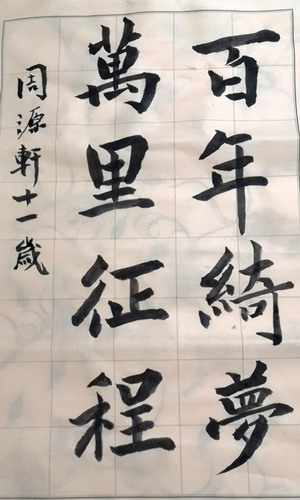 百年綺夢
萬里征程
周源軒十一歲